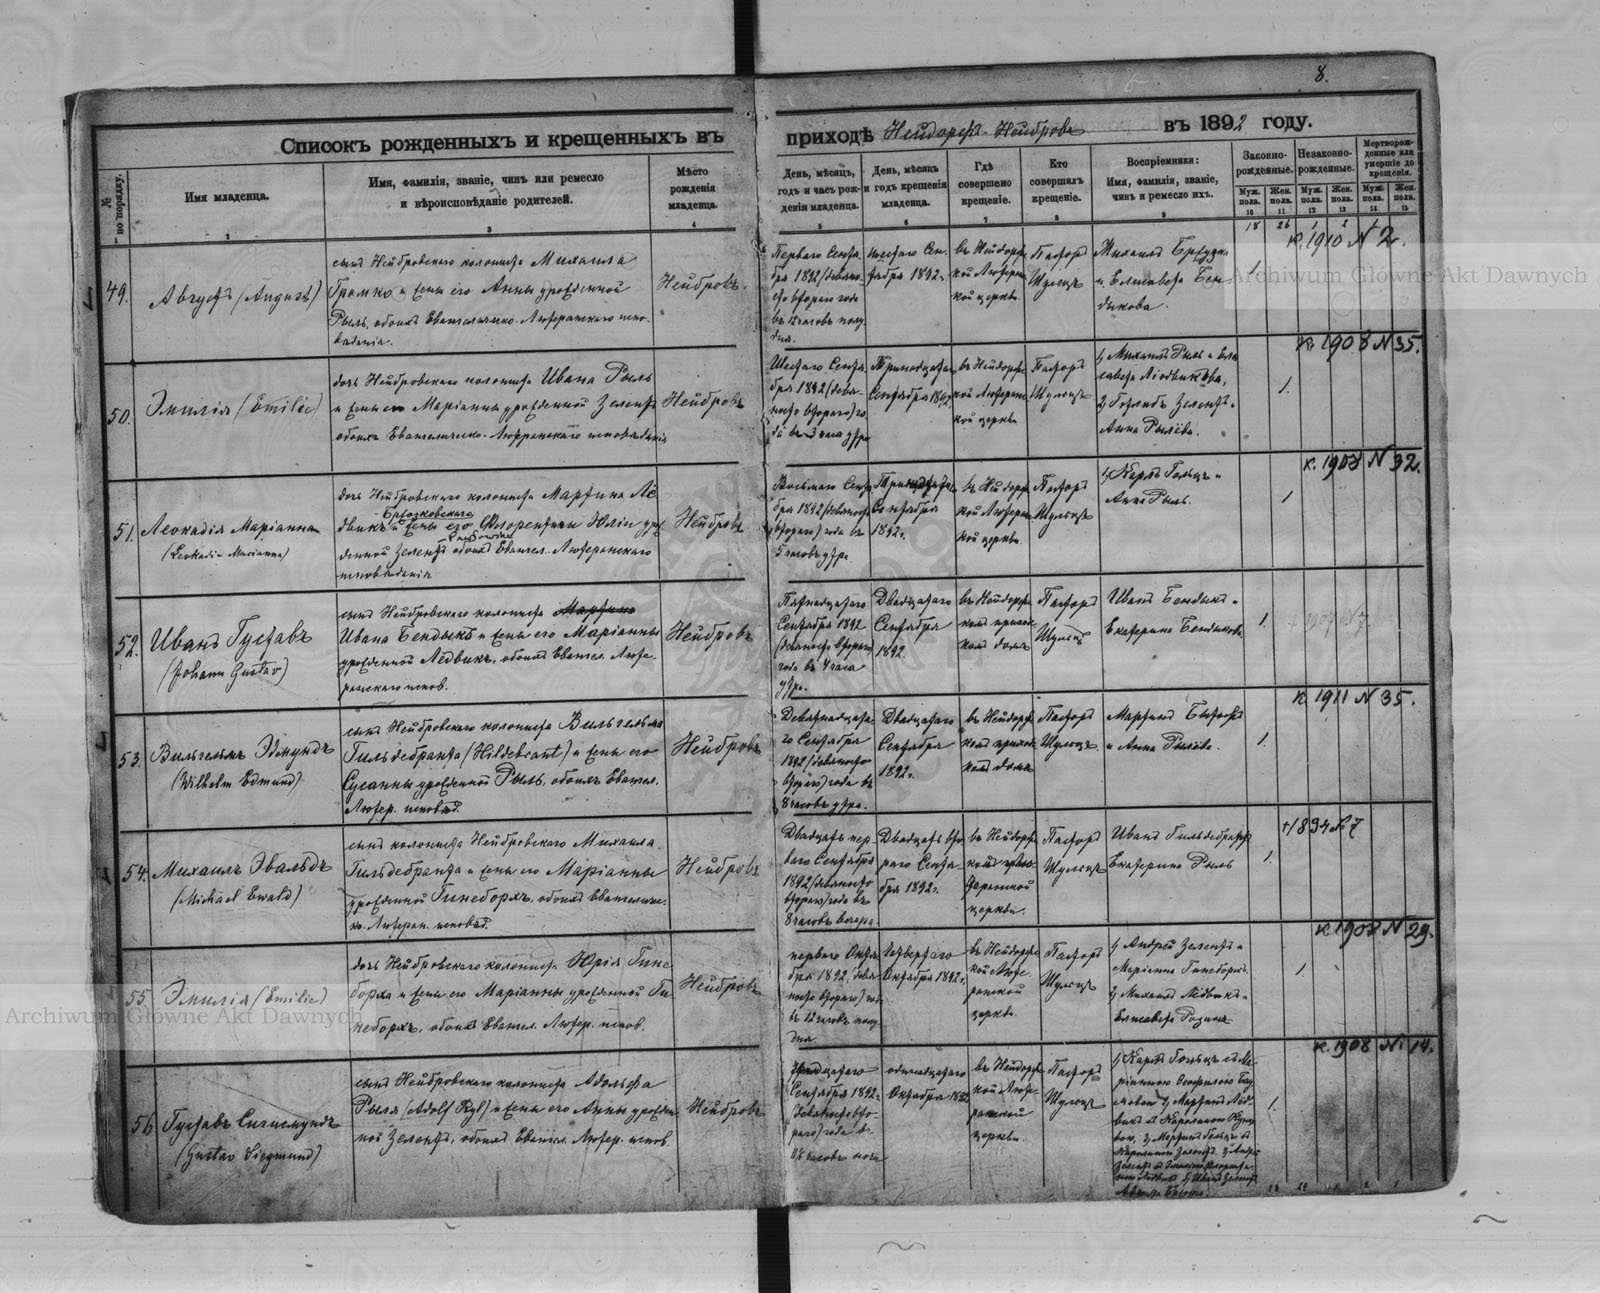 8.
Списокъ рожденныхъ и крещенныхъ въ приходѣ Нейдорфъ-Нейбровъ въ 1892 году.
№ по порядку.
Имя младенца.
Имя, фамилія, званіе, чинъ или ремесло
и вѣроисповѣданіе родителей.
Мѣсто
рожденія
младенца.
День, мѣсяцъ,
годъ и часъ рож-
денія младенца.
День, мѣсяцъ
и годъ крещенія
младенца.
Гдѣ
совершено
крещеніе.
Кто
совершилъ
крещеніе.
Воспріемники:
Имя, фамилія, званіе,
чинъ и ремесло ихъ.
Законно-
рожденные.
Незаконно-
рожденные.
Мертворож-
денные или
умершіе до
крещенія.
Муж. пола.
Жен. пола.
Муж. пола.
Жен. пола.
Муж. пола.
Жен. пола.
1 2 3 4 5 6 7 8 9 10 11 12 13 14 15
18 26
49.
Августъ (August)
сынъ Нейбровскаго колониста Михаила
Громко и жены его Анны урожденной
Рыль, обоихъ Евангелическо-Лютеранскаго испо-
веданія.
Нейбровъ
Перваго Сентя-
бря 1892 (девяно-
сто втораго) года
въ 12 часовъ полу-
дня.
шестаго Сен-
тября 1892 г.
въ Нейдорфс-
кой Лютеранс-
кой церкви.
Пасторъ
Шульцъ
Михаилъ
и Елисавета Бен-
дикова.
1.
К. 1910 N 2.
50.
Эмилія (Emilie)
дочь Нейбровскаго колониста Ивана Рыль
и жены его Маріанны урожденной Зеленть
обоихъ Евангелическо-Лютеранскаго исповеданія
Нейбровъ
Шестаго Сентя-
бря 1892 (девя-
носто втораго) го-
да въ 3 часа утра
Тринадцатаго
Сентября 1892
въ Нейдорфс-
кой Лютеранс-
кой церкви
Пасторъ
Шульцъ
1) Михаилъ Рыль и Ели-
савета Людвикова,
2) Готлибъ Зелентъ и
Анна Рылева.
1.
К. 1908 N 35.
51.
Леокадія Маріанна
(Leokadia Marianna)
дочь Нейбровскаго колониста Мартина Лю-
двикъ и жены его Флорентины Юліи уро-
жденной Зелентъ обоихъ Евангел. Лютеранскаго
исповѣданія
Нейбровъ
Восьмаго Сентя-
бря 1892 (девяносто
втораго) года въ
5 часовъ утра
Тринадцатаго
Сентября
1892 г.
въ Нейдорфс-
кой Лютеранс-
кой церкви
Пасторъ
Шульцъ
1) Карлъ Гольцъ и
Анна Рыль.
1
К. 1908 N 32.
52.
Иванъ Густавъ
(Johann Gustav)
сынъ Нейбровскаго колониста Мартина
Ивана Бендыкъ и жены его Маріанны
урожденной Людвикъ, обоихъ Евангел. Люте-
ранскаго испов.
Нейбровъ
Пятнадцатаго
Сентября 1892
(девяносто втораго)
года въ 4 часа
утра.
Двадцатаго
Сентября
1892.
въ Нейдорфс-
комъ приход-
комъ домѣ
Пасторъ
Шульцъ
Иванъ Бендыкъ и
Екатерина Бендыкова
1.
53.
Вильгельмъ Эдмундъ
(Wilhelm Edmund)
сынъ Нейбровскаго колониста Вильгельма
Гильдебранта (Hildebrant) и жены его
Сусанны урожденной Рыль, обоихъ Евангел.
Лютер. исповѣд.
Нейбровъ
Девятнадцата-
го Сентября
1892 (девяносто
втораго) года въ
8 часовъ утра.
Двадцатаго
Сентября
1892 г.
въ Нейдорфс-
комъ приход-
комъ домѣ
Пасторъ
Шульцъ
Мартинъ
и Анна Рылева.
1.
К. 1911 N 35.
54.
Михаилъ Эвальдъ
(Michael Ewald)
сынъ колониста Нейбровскаго Михаила
Гильдебранта и жены его Маріанны
урожденной Гинеборхъ, обоихъ Евангеличес-
ко-Лютеран. исповѣд.
Нейбровъ
Двадцать пер-
ваго Сентября
1892 (девяносто
втораго) года въ
8 часовъ вечера.
Двадцать вто-
раго Сентя-
бря 1892 г.
въ Нейдорфс-
церкви.
Пасторъ
Шульцъ
Иванъ Гильдебрантъ
Екатерина Рыль
1.
+1894 N 7
55.
Эмилія (Emilie)
дочь Нейбровскаго колониста Юрія Гине-
борха и жены его Маріанны урожденной Ги-
неборхъ, обоихъ Евангел. Лютер. испов.
Нейбровъ
перваго Октя-
бря 1892 (девя-
носто втораго) го-
въ 12 часовъ полу-
дня.
четвертаго
Октября 1892 г.
въ Нейдорфс-
кой Люте-
ранской
церкви.
Пасторъ
Шульцъ
1) Андрей Зелентъ и
Маріанна Гинеборхъ.
2) Михаилъ Людвикъ и
Елисавета
1
К. 1908 N 29.
56
Густавъ Сигисмундъ
(Gustav Siegmund)
сынъ Нейбровскаго колониста Адольфа
Рыля (Adolf Ryl) и жены его Анны урожден-
ной Зелентъ, обоихъ Евангел. Лютер. испов.
Нейбровъ
Сентября 1892 г.
(девяносто вто-
раго) года въ
часовъ ночи
одинадцатаго
Октября 1892
въ Нейдорфс-
кой Люте-
ранской
церкви.
Пасторъ
Шульцъ
1) Карлъ Гольцъ съ Ма-
1.
К. 1908 N 14.
Archiwum Główne Akt Dawnych
Archiwum Główne Akt Dawnych